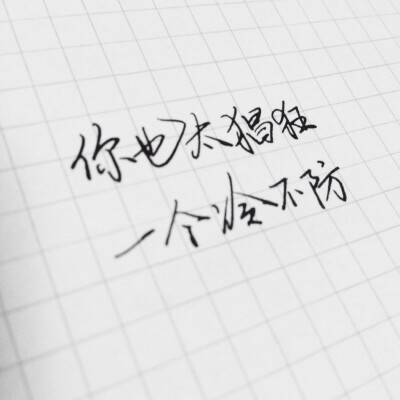 你也太猖狂
一个冷不防